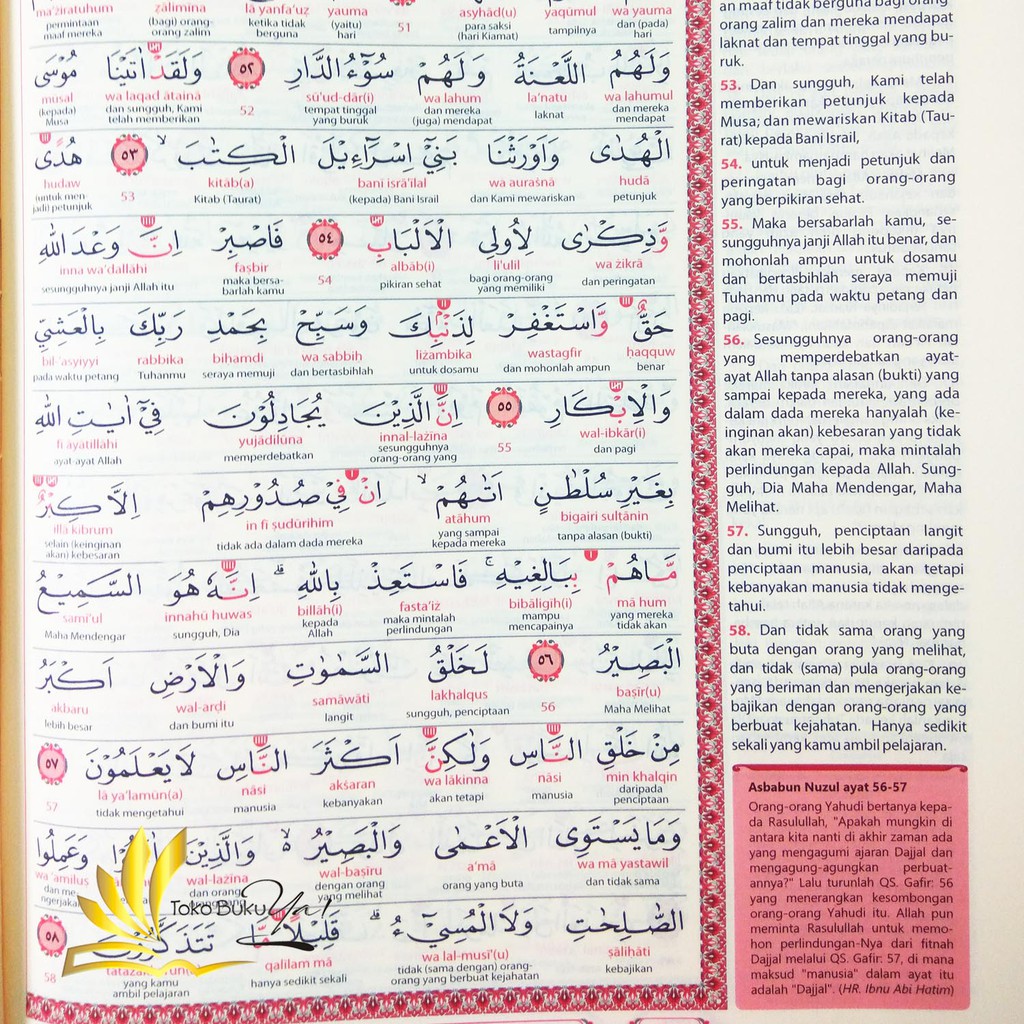 ma'żiratuhum żālimīna lā yanfa'uz yauma asyhād(u) yaqūmul wa yauma
permintaan maaf mereka (bagi) orang orang zalim ketika tidak berguna (yaitu) hari 51 para saksi (hari Kiamat) tampilnya dan (pada) hari
وَلَهُمُ اللَّعْنَةُ وَلَهُمْ سُوْۤءُ الدَّارِ ٥٢ وَلَقَدْ اٰتَيْنَا مُوْسَى
musal wa laqad ātainā sū'ud-dār(i) wa lahum la'natu wa lahumul
(kepada) Musa dan sungguh, Kami telah memberikan 52 tempat tinggal yang buruk dan mereka (juga) mendapat laknat dan mereka mendapat
الْهُدٰى وَاَوْرَثْنَا بَنِيْٓ اِسْرَاۤءِيْلَ الْكِتٰبَ ۙ ٥٣ هُدًى
hudaw kitāb(a) banī isrā'īlal wa auraśnā hudā
(untuk men jadi) petunjuk 53 Kitab (Taurat) (kepada) Bani Israil dan Kami mewariskan petunjuk
وَّذِكْرٰى لِاُولِى الْاَلْبَابِ ٥٤ فَاصْبِرْ اِنَّ وَعْدَ اللّٰهِ
inna wa'dallāhi faṣbir albāb(i) li'ulil wa żikrā
sesungguhnya janji Allah itu maka bersa- barlah kamu 54 pikiran sehat bagi orang-orang yang memiliki dan peringatan
حَقٌّ وَّاسْتَغْفِرْ لِذَنْۢبِكَ وَسَبِّحْ بِحَمْدِ رَبِّكَ بِالْعَشِيِّ
bil-'asyiyyi rabbika bihamdi wa sabbiḥ liżambika wastagfir ḥaqquw
pada waktu petang Tuhanmu seraya memuji dan bertasbihlah untuk dosamu dan mohonlah ampun benar
وَالْاِبْكَارِ ٥٥ اِنَّ الَّذِيْنَ يُجَادِلُوْنَ فِيْٓ اٰيٰتِ اللّٰهِ
fī āyātillāhi yujādilūna innal-lażīna wal-ibkār(i)
ayat-ayat Allah memperdebatkan sesungguhnya orang-orang yang 55 dan pagi
بِغَيْرِ سُلْطٰنٍ اَتٰىهُمْ ۙ اِنْ فِيْ صُدُوْرِهِمْ اِلَّا كِبْرٌ
illā kibrum in fī ṣudūrihim atāhum bigairi sulṭānin
selain (keinginan akan) kebesaran tidak ada dalam dada mereka yang sampai kepada mereka tanpa alasan (bukti)
مَّا هُمْ بِبَالِغِيْهِ ۚ فَاسْتَعِذْ بِاللّٰهِ ۗ اِنَّهٗ هُوَ السَّمِيْعُ
samī'ul innahū huwas billāh(i) fasta'iż bibāligīh(i) mā hum
Maha Mendengar sungguh, Dia kepada Allah maka mintalah perlindungan mampu mencapainya yang mereka tidak akan
الْبَصِيْرُ ٥٦ لَخَلْقُ السَّمٰوٰتِ وَالْاَرْضِ اَكْبَرُ
akbaru wal-arḍi samāwāti lakhalqus baṣīr(u)
lebih besar dan bumi itu langit sungguh, penciptaan 56 Maha Melihat
مِنْ خَلْقِ النَّاسِ وَلٰكِنَّ اَكْثَرَ النَّاسِ لَا يَعْلَمُوْنَ ٥٧
lā ya'lamūn(a) nāsi akśaran wa lākinna nāsi min khalqin
57 tidak mengetahui manusia kebanyakan akan tetapi manusia daripada penciptaan
وَمَا يَسْتَوِى الْاَعْمٰى وَالْبَصِيْرُ ەۙ وَالَّذِيْنَ وَعَمِلُوا
wa 'amiluṣ wal-lażīna wal-baṣīru a'mā wa mā yastawil
dan me- ngerjakan dan orang dengan orang yang melihat orang yang buta dan tidak sama
الصّٰلِحٰتِ وَلَا الْمُسِيْۤءُ ۗ قَلِيْلًا مَّا تَتَذَكَّرُوْنَ ٥٨
qalīlam mā wa lal-musī'(u) ṣāliḥāti
58 yang kamu ambil pelajaran hanya sedikit sekali tidak (sama dengan) orang- orang yang berbuat kejahatan kebajikan
Toko Buku Ya!
an maaf tidak berguna bagi orang-
orang zalim dan mereka mendapat
laknat dan tempat tinggal yang bu-
ruk.
53. Dan sungguh, Kami telah
memberikan petunjuk kepada
Musa; dan mewariskan Kitab (Tau-
rat) kepada Bani Israil,
54. untuk menjadi petunjuk dan
peringatan bagi orang-orang
yang berpikiran sehat.
55. Maka bersabarlah kamu, se-
sungguhnya janji Allah itu benar, dan
mohonlah ampun untuk dosamu
dan bertasbihlah seraya memuji
Tuhanmu pada waktu petang dan
pagi.
56. Sesungguhnya orang-orang
yang memperdebatkan ayat-
ayat Allah tanpa alasan (bukti) yang
sampai kepada mereka, yang ada
dalam dada mereka hanyalah (ke-
inginan akan) kebesaran yang tidak
akan mereka capai, maka mintalah
perlindungan kepada Allah. Sung-
guh, Dia Maha Mendengar, Maha
Melihat.
57. Sungguh, penciptaan langit
dan bumi itu lebih besar daripada
penciptaan manusia, akan tetapi
kebanyakan manusia tidak menge-
tahui.
58. Dan tidak sama orang yang
buta dengan orang yang melihat,
dan tidak (sama) pula orang-orang
yang beriman dan mengerjakan ke-
bajikan dengan orang-orang yang
berbuat kejahatan. Hanya sedikit
sekali yang kamu ambil pelajaran.
Asbabun Nuzul ayat 56-57
Orang-orang Yahudi bertanya kepa-
da Rasulullah, "Apakah mungkin di
antara kita nanti di akhir zaman ada
yang mengagumi ajaran Dajjal dan
mengagung-agungkan perbuat-
annya?" Lalu turunlah QS. Gafir: 56
yang menerangkan kesombongan
orang-orang Yahudi itu. Allah pun
meminta Rasulullah untuk memo-
hon perlindungan-Nya dari fitnah
Dajjal melalui QS. Gafir: 57, di mana
maksud "manusia" dalam ayat itu
adalah "Dajjal". (HR. Ibnu Abi Hatim)